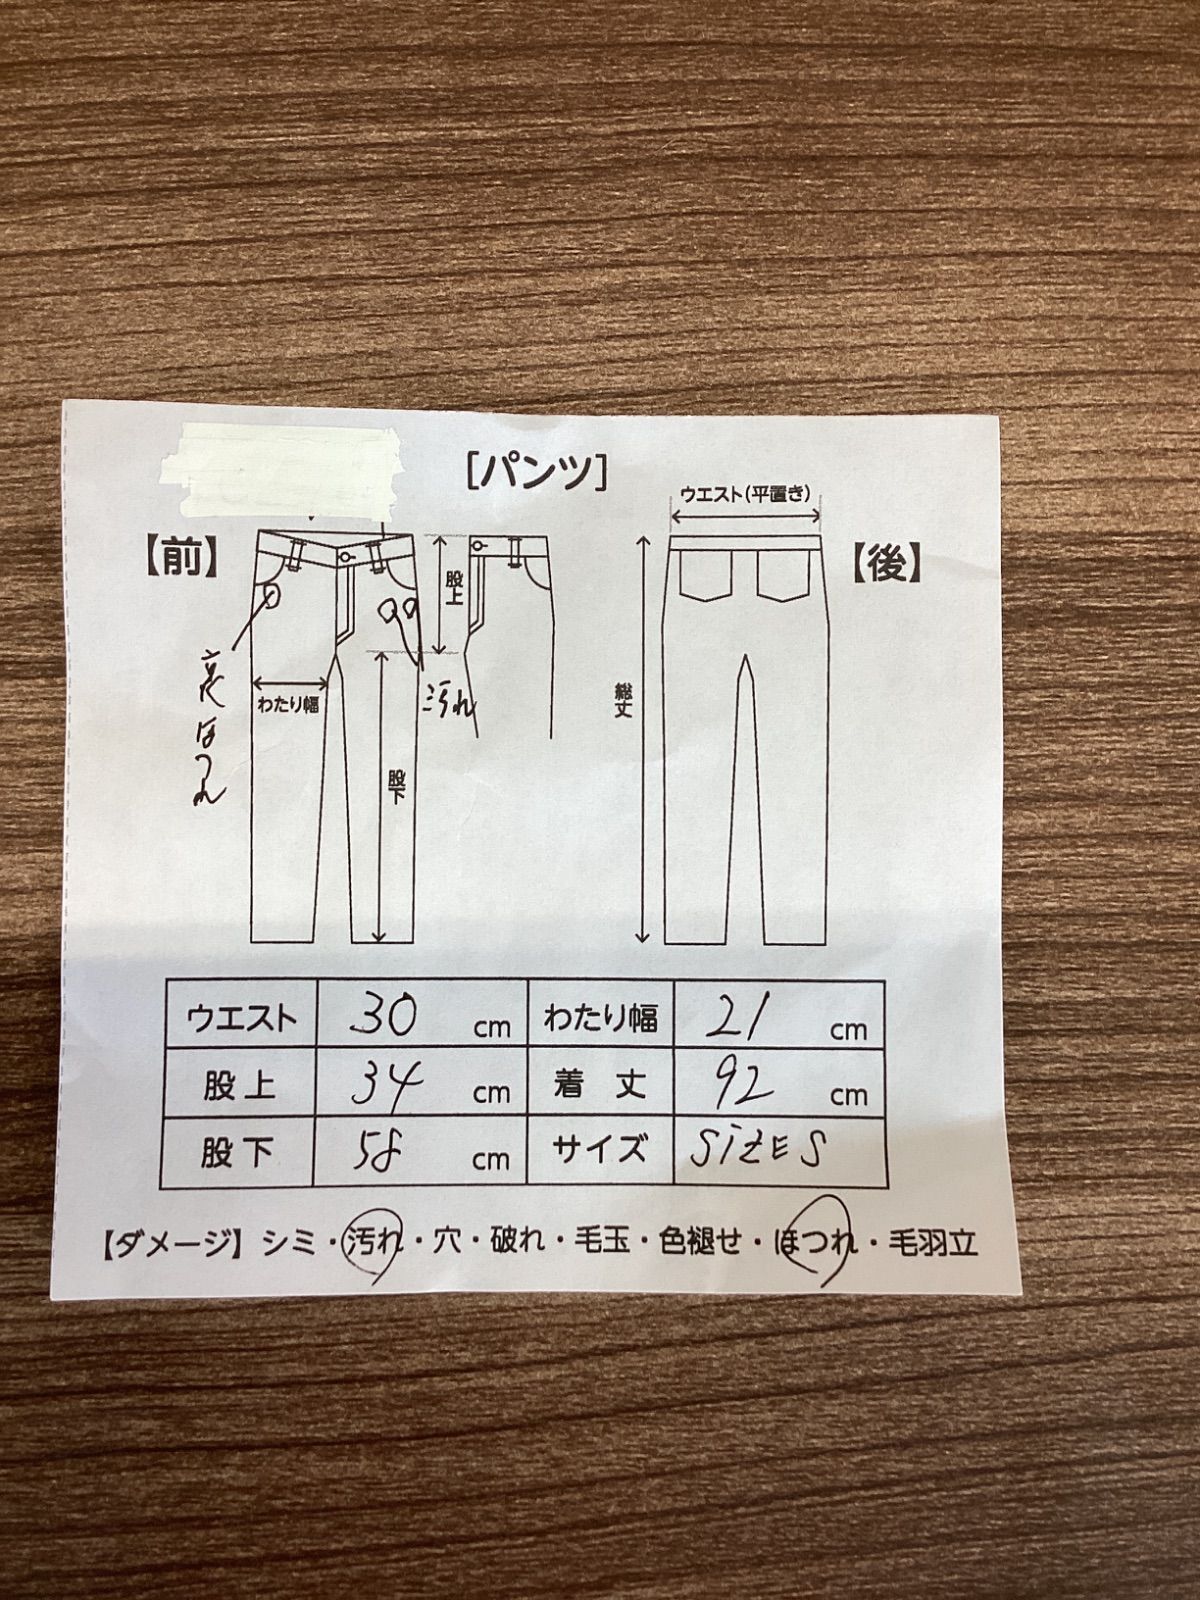 [パンツ]
ウエスト(平置き)
【前】
【後】
股上
裏ほつれ
わたり幅
汚れ
総丈
股下
ウエスト 30 cm わたり幅 21 cm
股上 34 cm 着丈 92 cm
股下 58 cm サイズ SIZE S
【ダメージ】シミ・汚れ・穴・破れ・毛玉・色褪せ・ほつれ・毛羽立